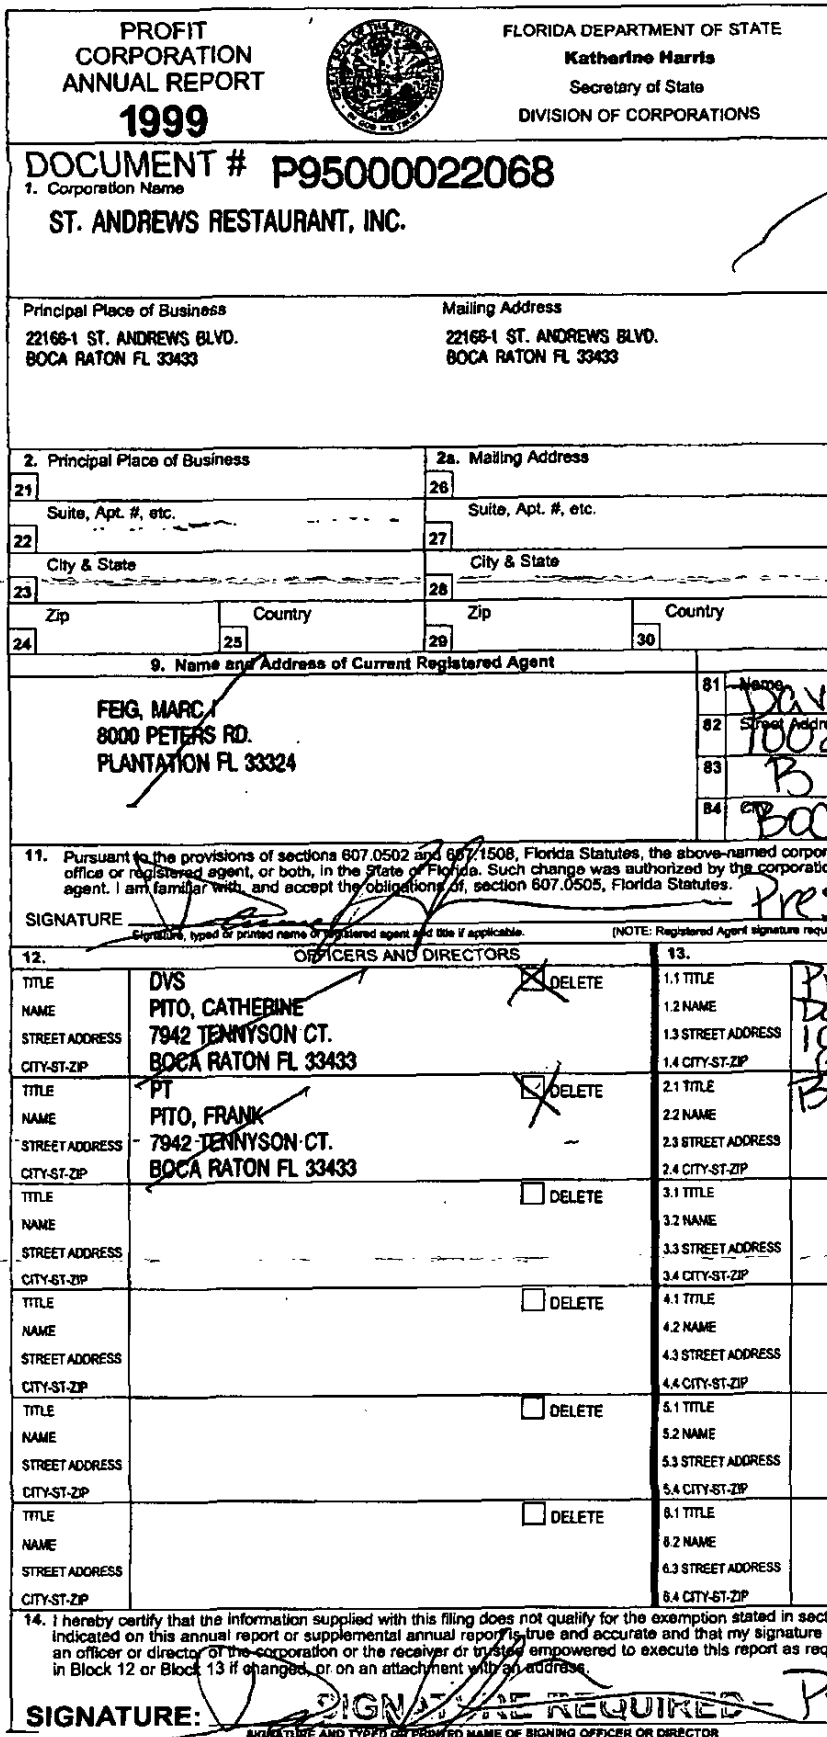 PROFIT
CORPORATION
ANNUAL REPORT
1999
FLORIDA DEPARTMENT OF STATE
Katherine Harris
Secretary of State
DIVISION OF CORPORATIONS
DOCUMENT # P95000022068
1. Corporation Name
ST. ANDREWS RESTAURANT, INC.
Principal Place of Business
22166-1 ST. ANDREWS BLVD.
BOCA RATON FL 33433
Mailing Address
22166-1 ST. ANDREWS BLVD.
BOCA RATON FL 33433
2. Principal Place of Business
2a. Mailing Address
21
26
Suite, Apt. #, etc.
Suite, Apt. #, etc.
22
27
City & State
City & State
23
28
Zip
Country
Zip
Country
24
25
29
30
9. Name and Address of Current Registered Agent
FEIG, MARC I
8000 PETERS RD.
PLANTATION FL 33324
81 Name
82 Street Addre
83 B
84 City
11. Pursuant to the provisions of sections 607.0502 and 607.1508, Florida Statutes, the above-named corpor
office or registered agent, or both, in the State of Florida. Such change was authorized by the corporatio
agent. I am familiar with, and accept the obligations of, section 607.0505, Florida Statutes.
SIGNATURE
Pres
Signature, typed or printed name of registered agent and title if applicable.
(NOTE: Registered Agent signature requ
12. OFFICERS AND DIRECTORS
13.
TITLE DVS DELETE
NAME PITO, CATHERINE
STREET ADDRESS 7942 TENNYSON CT.
CITY-ST-ZIP BOCA RATON FL 33433
1.1 TITLE
1.2 NAME
1.3 STREET ADDRESS
1.4 CITY-ST-ZIP
TITLE PT DELETE
NAME PITO, FRANK
STREET ADDRESS 7942 TENNYSON CT.
CITY-ST-ZIP BOCA RATON FL 33433
2.1 TITLE
2.2 NAME
2.3 STREET ADDRESS
2.4 CITY-ST-ZIP
TITLE DELETE
NAME
STREET ADDRESS
CITY-ST-ZIP
3.1 TITLE
3.2 NAME
3.3 STREET ADDRESS
3.4 CITY-ST-ZIP
TITLE DELETE
NAME
STREET ADDRESS
CITY-ST-ZIP
4.1 TITLE
4.2 NAME
4.3 STREET ADDRESS
4.4 CITY-ST-ZIP
TITLE DELETE
NAME
STREET ADDRESS
CITY-ST-ZIP
5.1 TITLE
5.2 NAME
5.3 STREET ADDRESS
5.4 CITY-ST-ZIP
TITLE DELETE
NAME
STREET ADDRESS
CITY-ST-ZIP
6.1 TITLE
6.2 NAME
6.3 STREET ADDRESS
6.4 CITY-ST-ZIP
14. I hereby certify that the information supplied with this filing does not qualify for the exemption stated in sect
indicated on this annual report or supplemental annual report is true and accurate and that my signature
an officer or director of the corporation or the receiver or trustee empowered to execute this report as req
in Block 12 or Block 13 if changed, or on an attachment with an address.
SIGNATURE: SIGNATURE REQUIRED
SIGNATURE AND TYPED OR PRINTED NAME OF SIGNING OFFICER OR DIRECTOR